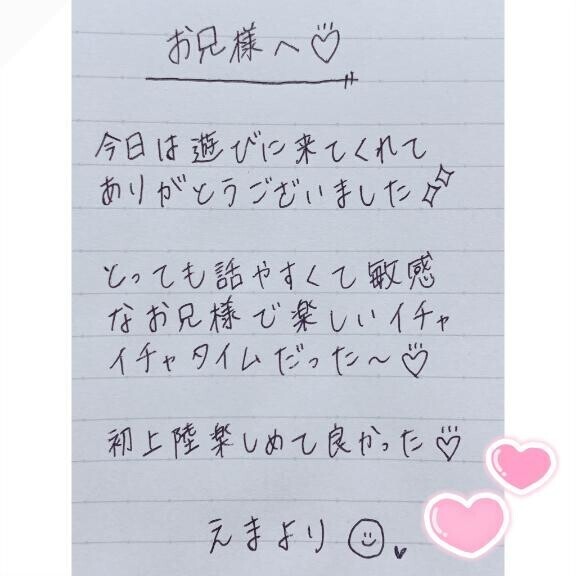 お兄様へ♡
今日は遊びに来てくれて
ありがとうございました
とっても話やすくて敏感
なお兄様で楽しいイチャ
イチャタイムだった〜♡
初上陸楽しめて良かった♡
えまより